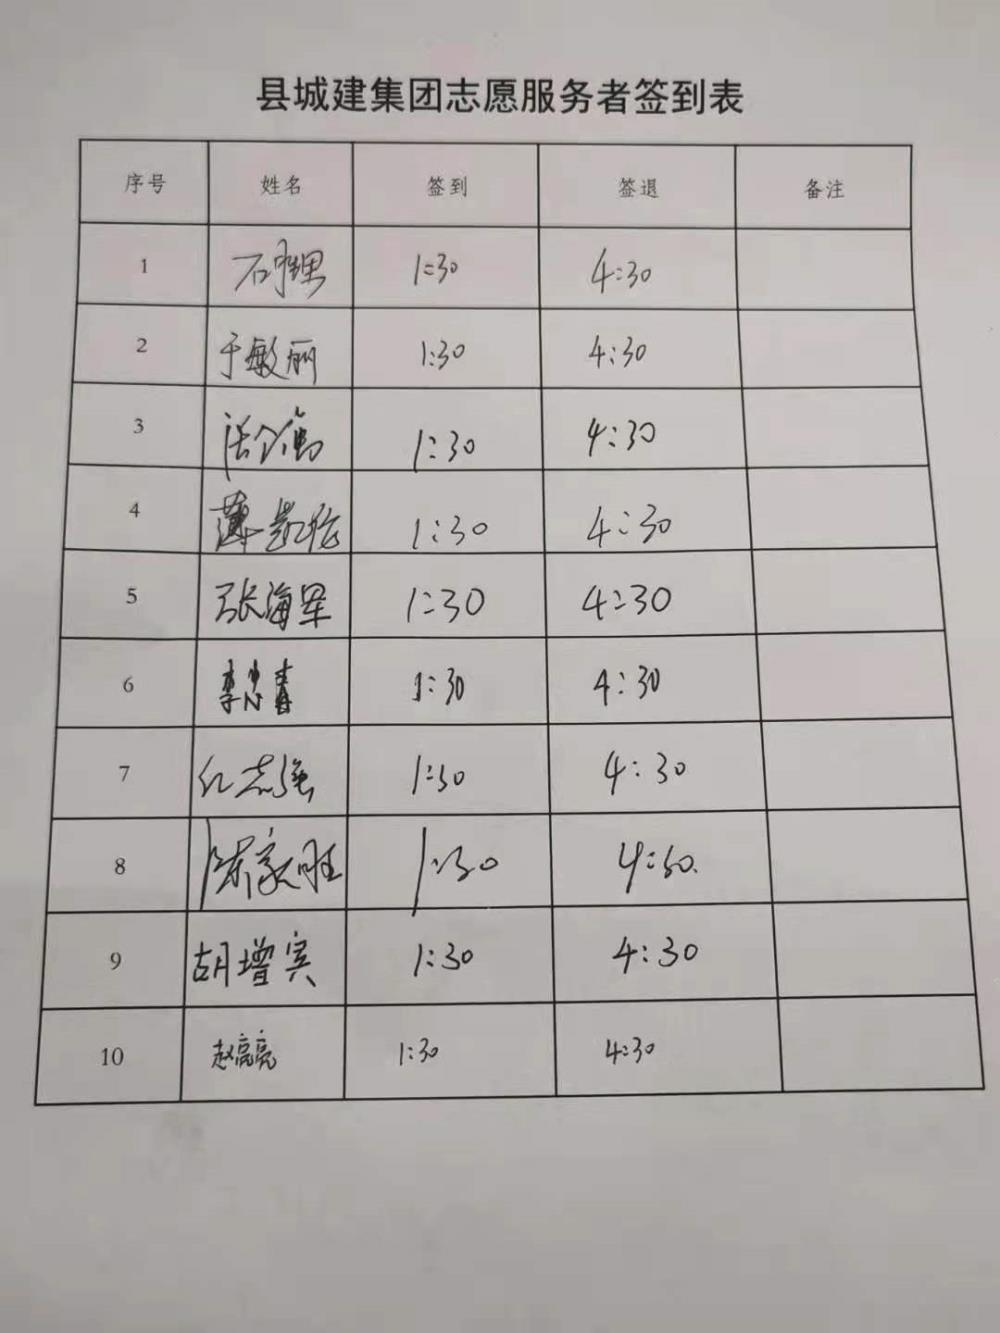 县城建集团志愿服务者签到表
序号 姓名 签到 签退 备注
1 1:30 4:30
2 于敏丽 1:30 4:30
3 1:30 4:30
4 薄凯 1:30 4:30
5 张海军 1:30 4:30
6 李 春 1:30 4:30
7 志强 1:30 4:30
8 陈家旺 1:30 4:30.
9 胡增宾 1:30 4:30
10 赵亮亮 1:30 4:30